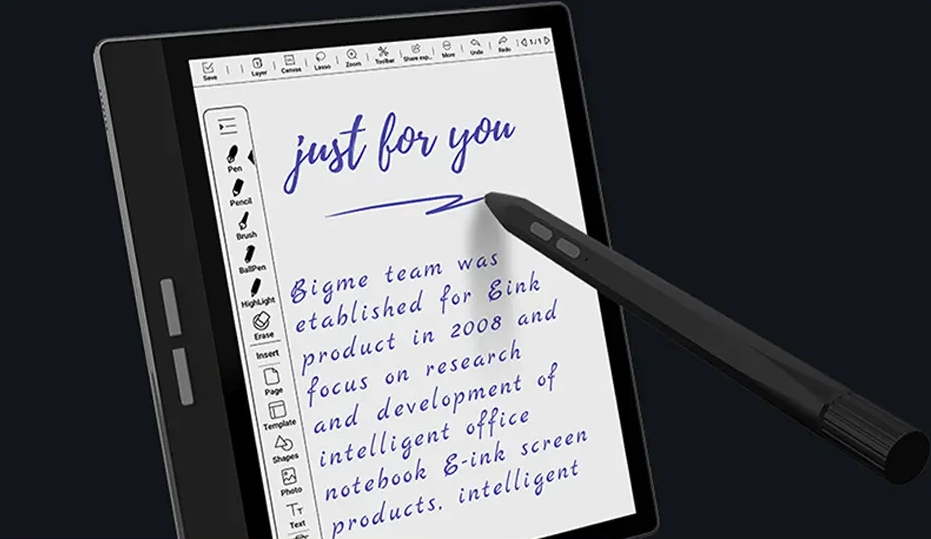 Save
Layer
Canvas
Lasso
Zoom
Toolbar
Share exp...
More
Undo
Redo
1/1
Pen
Pencil
Brush
BallPen
HighLight
Erase
Insert
Page
Template
Shapes
Photo
Text
just for you
Bigme team was
etablished for Eink
product in 2008 and
focus on research
and development of
intelligent office
notebook E-ink screen
products. intelligent